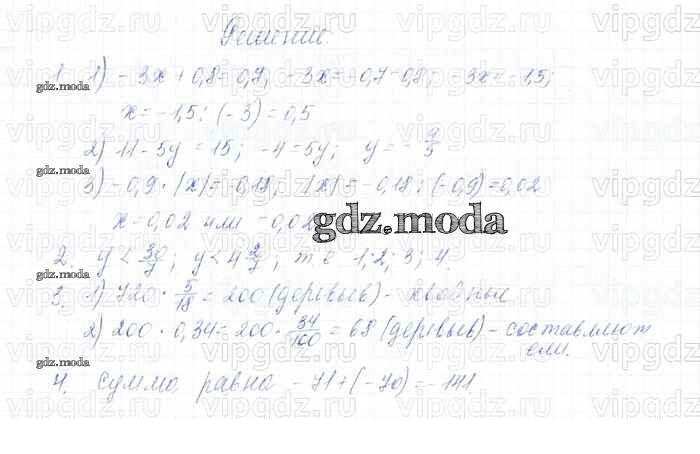 Решение.
1. 1) -3x + 0,8 = 0,7; -3x = -0,7 - 0,8; -3x = -1,5;
gdz.moda
x = -1,5 : (-3) = 0,5
2) -11 - 5y = 15; -4 = 5y; y = -4/5
gdz.moda
3) -0,9 · |x| = -0,18; |x| = -0,18 : (-0,9) = 0,02
x = 0,02 или -0,02
gdz.moda
2. y < 30/7; y < 4 2/7; т.е. 1; 2; 3; 4.
3. 1) 720 · 5/18 = 200 (деревьев) - хвойные
2) 200 · 0,34 = 200 · 34/100 = 68 (деревьев) - составляют
ели.
gdz.moda
4. Сумма равна -71 + (-70) = -141.
vipgdz.ru